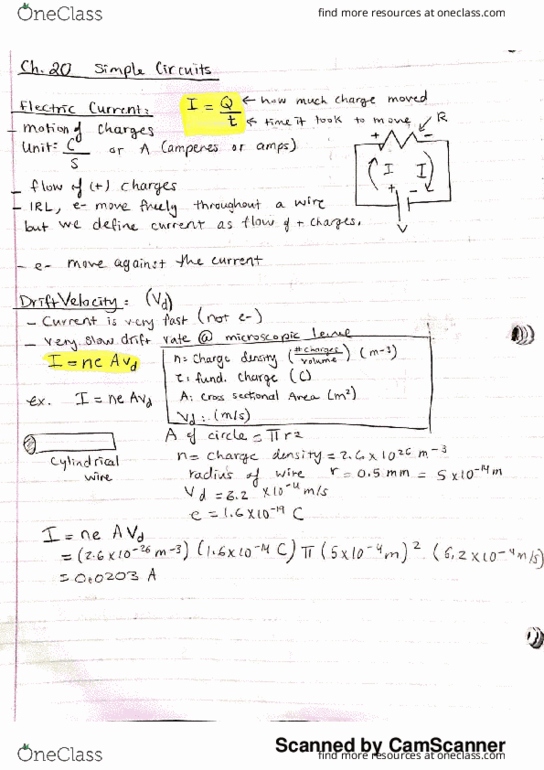 OneClass
find more resources at oneclass.com
Ch. 20 Simple Circuits
Electric Current:
I = Q/t ← how much charge moved
← time it took to move
R
- motion of charges
Unit: C/S or A (amperes or amps)
+ -
I I
+ -
V
- flow of (+) charges
- IRL, e- move freely throughout a wire
but we define current as flow of + charges.
- e- move against the current
Drift Velocity: (Vd)
- Current is very fast (not e-)
- very slow drift rate @ microscopic level
I = ne AVd
n= charge density (# charges/volume) (m-3)
e: fund. charge (C)
A: cross sectional Area (m²)
Vd: (m/s)
ex. I = ne AVd
A of circle = πr2
Cylindrical
wire
n= charge density = 2.6 x 10²⁶ m-3
radius of wire r = 0.5 mm = 5 x10-4m
Vd = 6.2 x10-4 m/s
e = 1.6x10-19 C
I = ne AVd
= (2.6 x10-26 m-3) (1.6x10-19 C) π (5x10-4m)² (6.2x10-4m/s)
= 0.0203 A
Scanned by CamScanner
OneClass
find more resources at oneclass.com